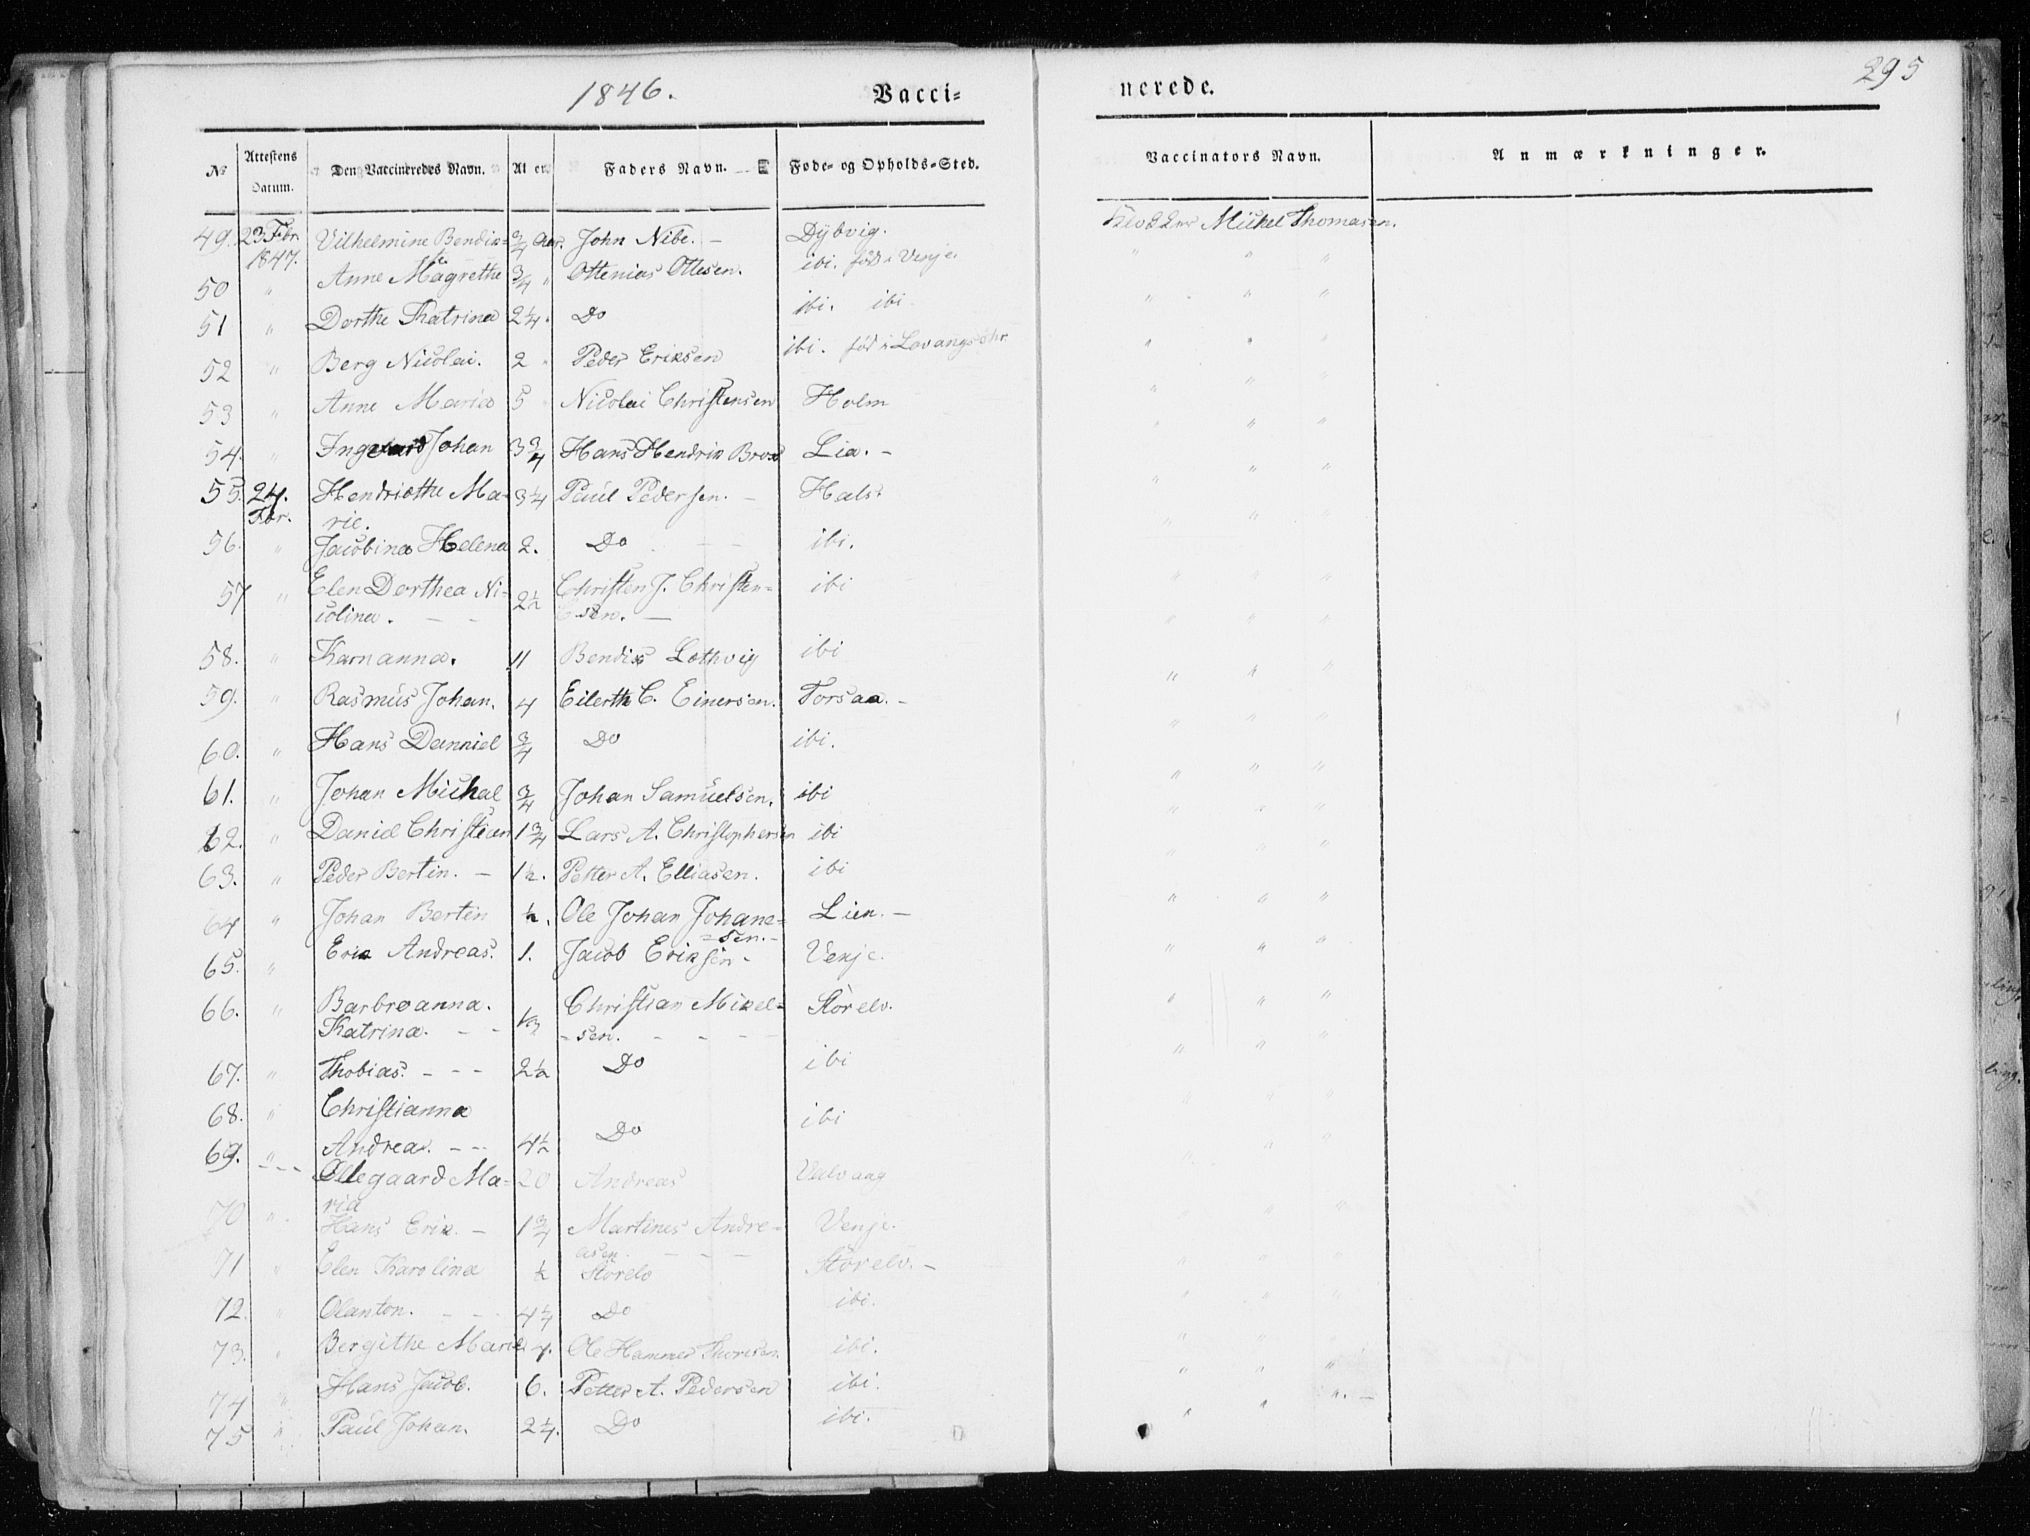 1846. Vacci=
nerede. 295
No Attestens Datum. Den Vaccineredes Navn. Alder Faders Navn. Føde- og Opholds-Sted.
Vaccinators Navn. Anmærkninger.
49. 23 Febr. 1847. Vilhelmine Bendix= 3/4 Aar. John Nibe. – Dybvig. Michel Thomasen.
50 " Anne Magrethe 3/4 " Ottenias Ottesen. ibi. fød i Venje. " " "
51 " Dorthe Katrina 2 1/4. Do ibi. ibi. " " "
52 " Berg Nicolai. 2 " Peder Eriksen ibi. fød i " " "
53 " Anne Maria 5 " Nicolai Christensen Holm " " "
54. " Johan 3 3/4 Hans Hendrik Brox Lia. – " " "
55. 24. Febr. Hendriethe Ma= 3 1/4 Paul Pedersen. – Hals " " "
rie.
56. " Jacobina Helena 2. Do – – ibi. " " "
57 " Elen Dorthea Ni= 2 1/2 Christen J. Christen= ibi " " "
colina. – – sen. –
58. " Karnanna. 11 Bendix Lothvig ibi " " "
59. " Rasmus Johan. 4 Eilerth C. Einersen. Torsaa. – " " "
60. " Hans Danniel 3/4 Do ibi. " " "
61. " Johan Michal 3/4 Johan Samuelsen. ibi " " "
62. " Daniel Christian 1 3/4 Lars A. Christophersen ibi " " "
63. " Peder Bertin. – 1 1/2. Petter A. Elliasen. ibi " " "
64 " Johan Bertin 1/2. Ole Johan Johane= Lien. – " " "
=sen. –
65. " Erik Andreas. 1. Jacob Eriksen – Venje. " " "
66. " Barbroanna. Christian Mikel= Storelv. " " "
Katrina. – – =sen. – – – –
67. " Thobias. – – – 2 1/2 Do ibi " " "
68. " Christianna ibi " " "
69. " Andrea. – – 4 1/2 Do
– – – Ollegaard Ma= 20 Andreas Valvaag
70 " ria
Hans Erik. – 1 3/4 Martines Andre= Venje.
asen. – – –
71 " Elen Karolina 1/2 Storelv Storelv. –
72. " Olanton. – – – 4 1/4 Do ibi.
73. " Bergithe Marie 7. Ole Hammer Thoresen. ibi.
74 " Hans Jacob. 6. Petter A. Pedersen ibi.
75 " Paul Johan. 2 1/4. Do ibi.